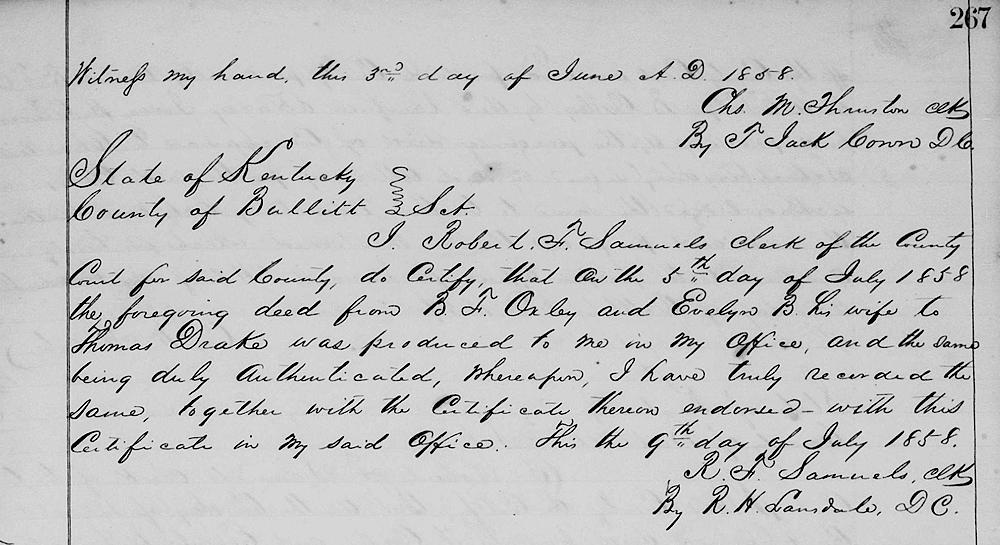 267
Witness my hand, this 3rd day of June A.D. 1858.
Chs. M. Thruston Clk
By F Jack Conn D.C.
State of Kentucky
County of Bullitt Sct.
I, Robert. F. Samuels clerk of the County
Court for said County, do Certify, that On the 5th day of July 1858
the foregoing deed from B. F. Oxley and Evelyn B. his wife to
Thomas Drake was produced to me in my Office, and the same
being duly Authenticated, Whereupon, I have truly recorded the
same, together with the Certificate thereon endorsed - with this
Certificate in my said Office. This the 9th day of July 1858.
R. F. Samuels, Clk
By R. H. Lansdale, D C.